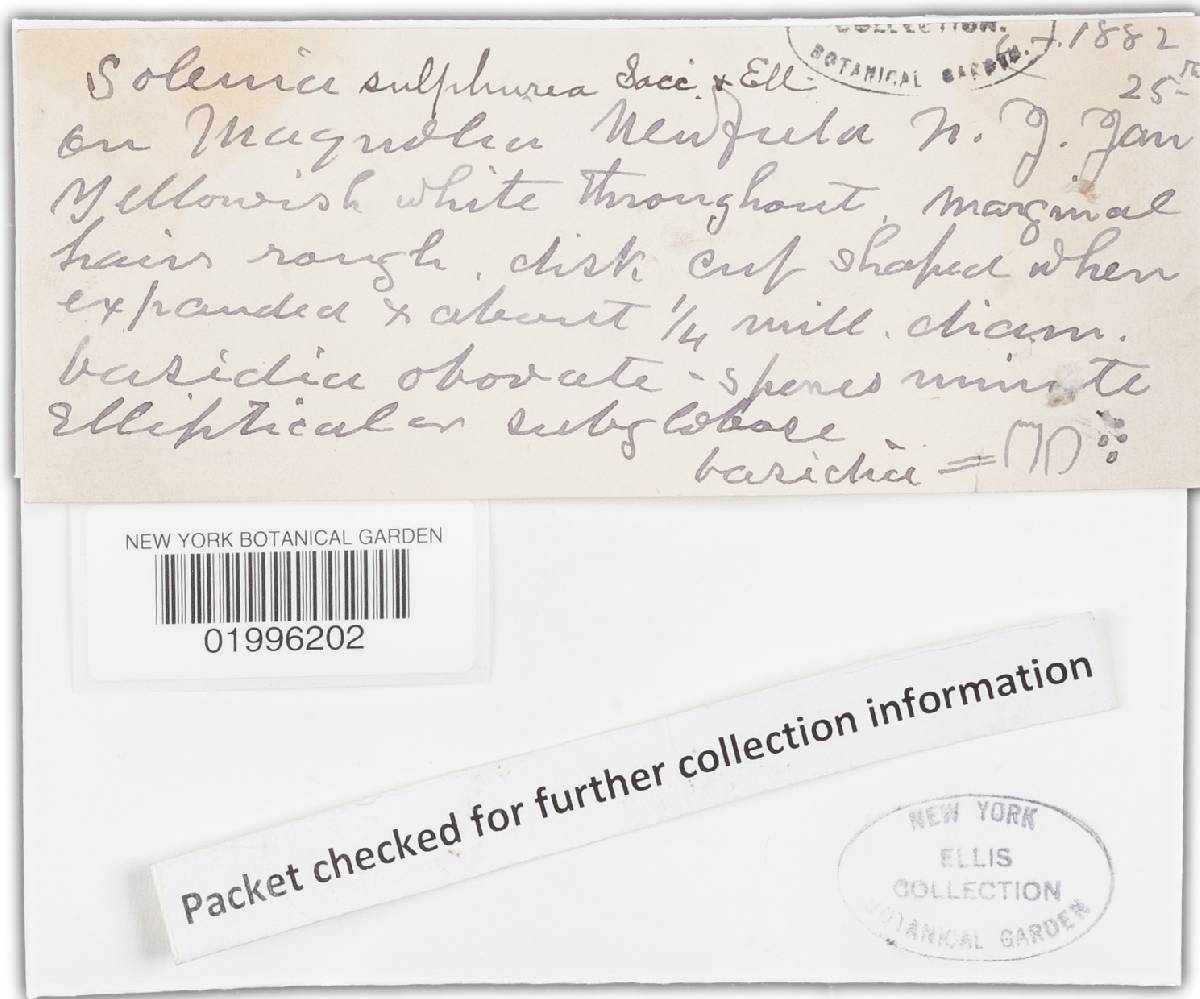 COLLECTION.
BOTANICAL GARDEN.
1882
Solenia sulphurea Sacc. & Ell
25th
on Magnolia Newfield N. J. Jan
Yellowish white throughout, marginal
hairs rough, disk cup shaped when
expanded & about 1/4 mill. diam.
basidia obovate - spores minute
Elliptical or subglobose
basidia =
NEW YORK BOTANICAL GARDEN
01996202
Packet checked for further collection information
NEW YORK
ELLIS
COLLECTION
BOTANICAL GARDEN